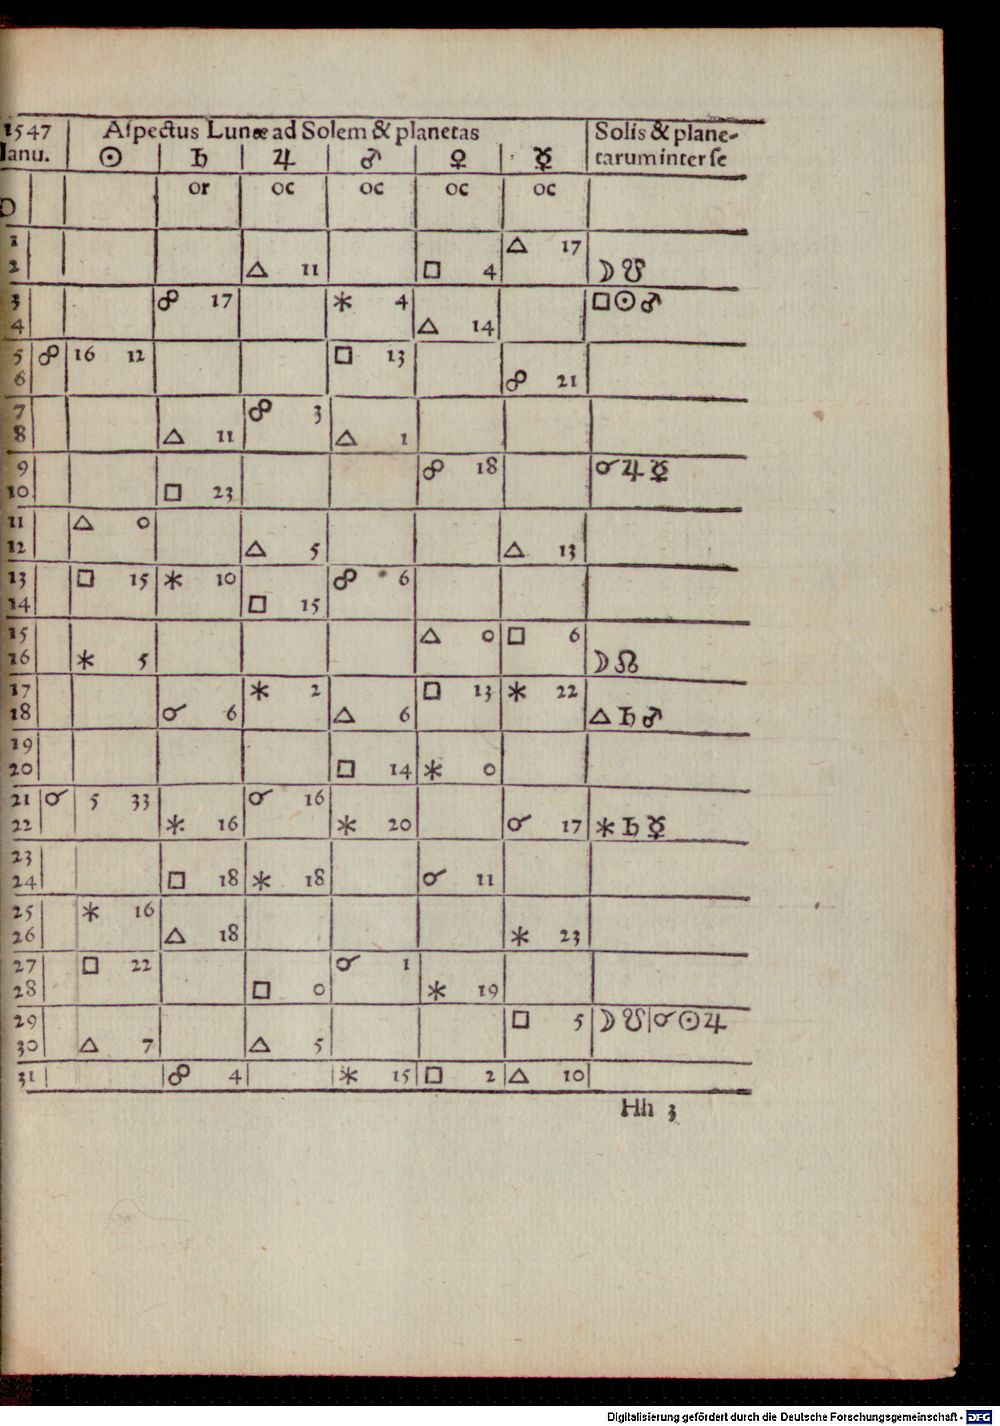 1547 Aſpectus Lunæ ad Solem & planetas Solis & plane-
Ianu. ☉ ♄ ♃ ♂ ♀ ☿ tarum inter ſe
or oc oc oc oc
1 △ 17
2 △ 11 □ 4 ☽ ☋
3 ☍ 17 ⚹ 4 □ ☉ ♂
4 △ 14
5 ☍ 16 12 □ 13
6 ☍ 21
7 ☍ 3
8 △ 11 △ 1
9 ☍ 18 ☌ ♃ ☿
10 □ 23
11 △ 0
12 △ 5 △ 13
13 □ 15 ⚹ 10 ☍ 6
14 □ 15
15 △ 0 □ 6
16 ⚹ 5 ☽ ☊
17 ⚹ 2 □ 13 ⚹ 22
18 ☌ 6 △ 6 △ ♄ ♂
19
20 □ 14 ⚹ 0
21 ☌ 5 33 ☌ 16
22 ⚹ 16 ⚹ 20 ☌ 17 ⚹ ♄ ☿
23
24 □ 18 ⚹ 18 ☌ 11
25 ⚹ 16
26 △ 18 ⚹ 23
27 □ 22 ☌ 1
28 □ 0 ⚹ 19
29 □ 5 ☽ ☋ | ☌ ☉ ♃
30 △ 7 △ 5
31 ☍ 4 ⚹ 15 □ 2 △ 10
Hh 3
Digitalisierung gefördert durch die Deutsche Forschungsgemeinschaft - DFG